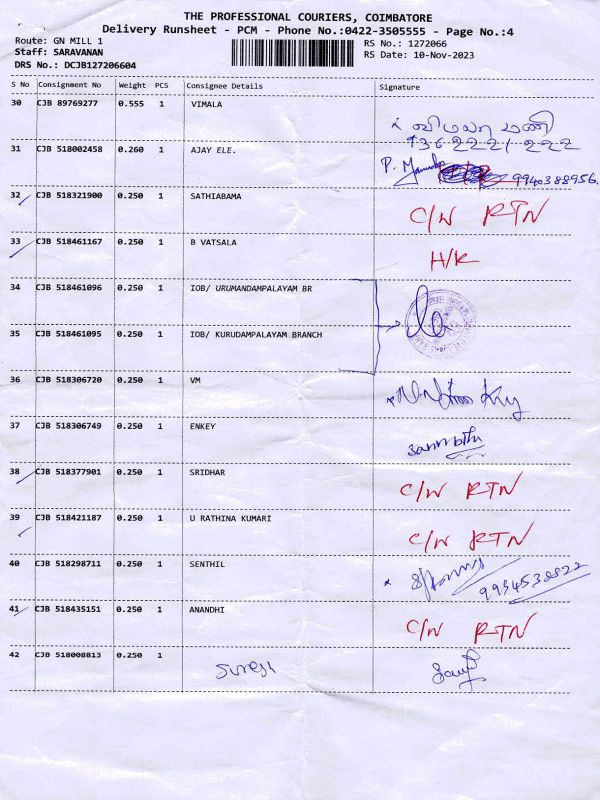 THE PROFESSIONAL COURIERS, COIMBATORE
Delivery Runsheet - PCM - Phone No.:0422-3505555 - Page No.:4
Route: GN MILL 1 RS No.: 1272066
Staff: SARAVANAN RS Date: 10-Nov-2023
DRS No.: DCJB127206604
S No Consignment No Weight PCS Consignee Details Signature
30 CJB 89769277 0.555 1 VIMALA
விமலா மணி
31 CJB 518002458 0.260 1 AJAY ELE.
9940388956.
32 CJB 518321900 0.250 1 SATHIABAMA
C/N RTN
33 CJB 518461167 0.250 1 B VATSALA
H/K
34 CJB 518461096 0.250 1 IOB/ URUMANDAMPALAYAM BR
35 CJB 518461095 0.250 1 IOB/ KURUDAMPALAYAM BRANCH
36 CJB 518306720 0.250 1 VM
37 CJB 518306749 0.250 1 ENKEY
38 CJB 518377901 0.250 1 SRIDHAR
C/N RTN
39 CJB 518421187 0.250 1 U RATHINA KUMARI
C/N RTN
40 CJB 518298711 0.250 1 SENTHIL
9994538822
41 CJB 518435151 0.250 1 ANANDHI
C/N RTN
42 CJB 518008813 0.250 1